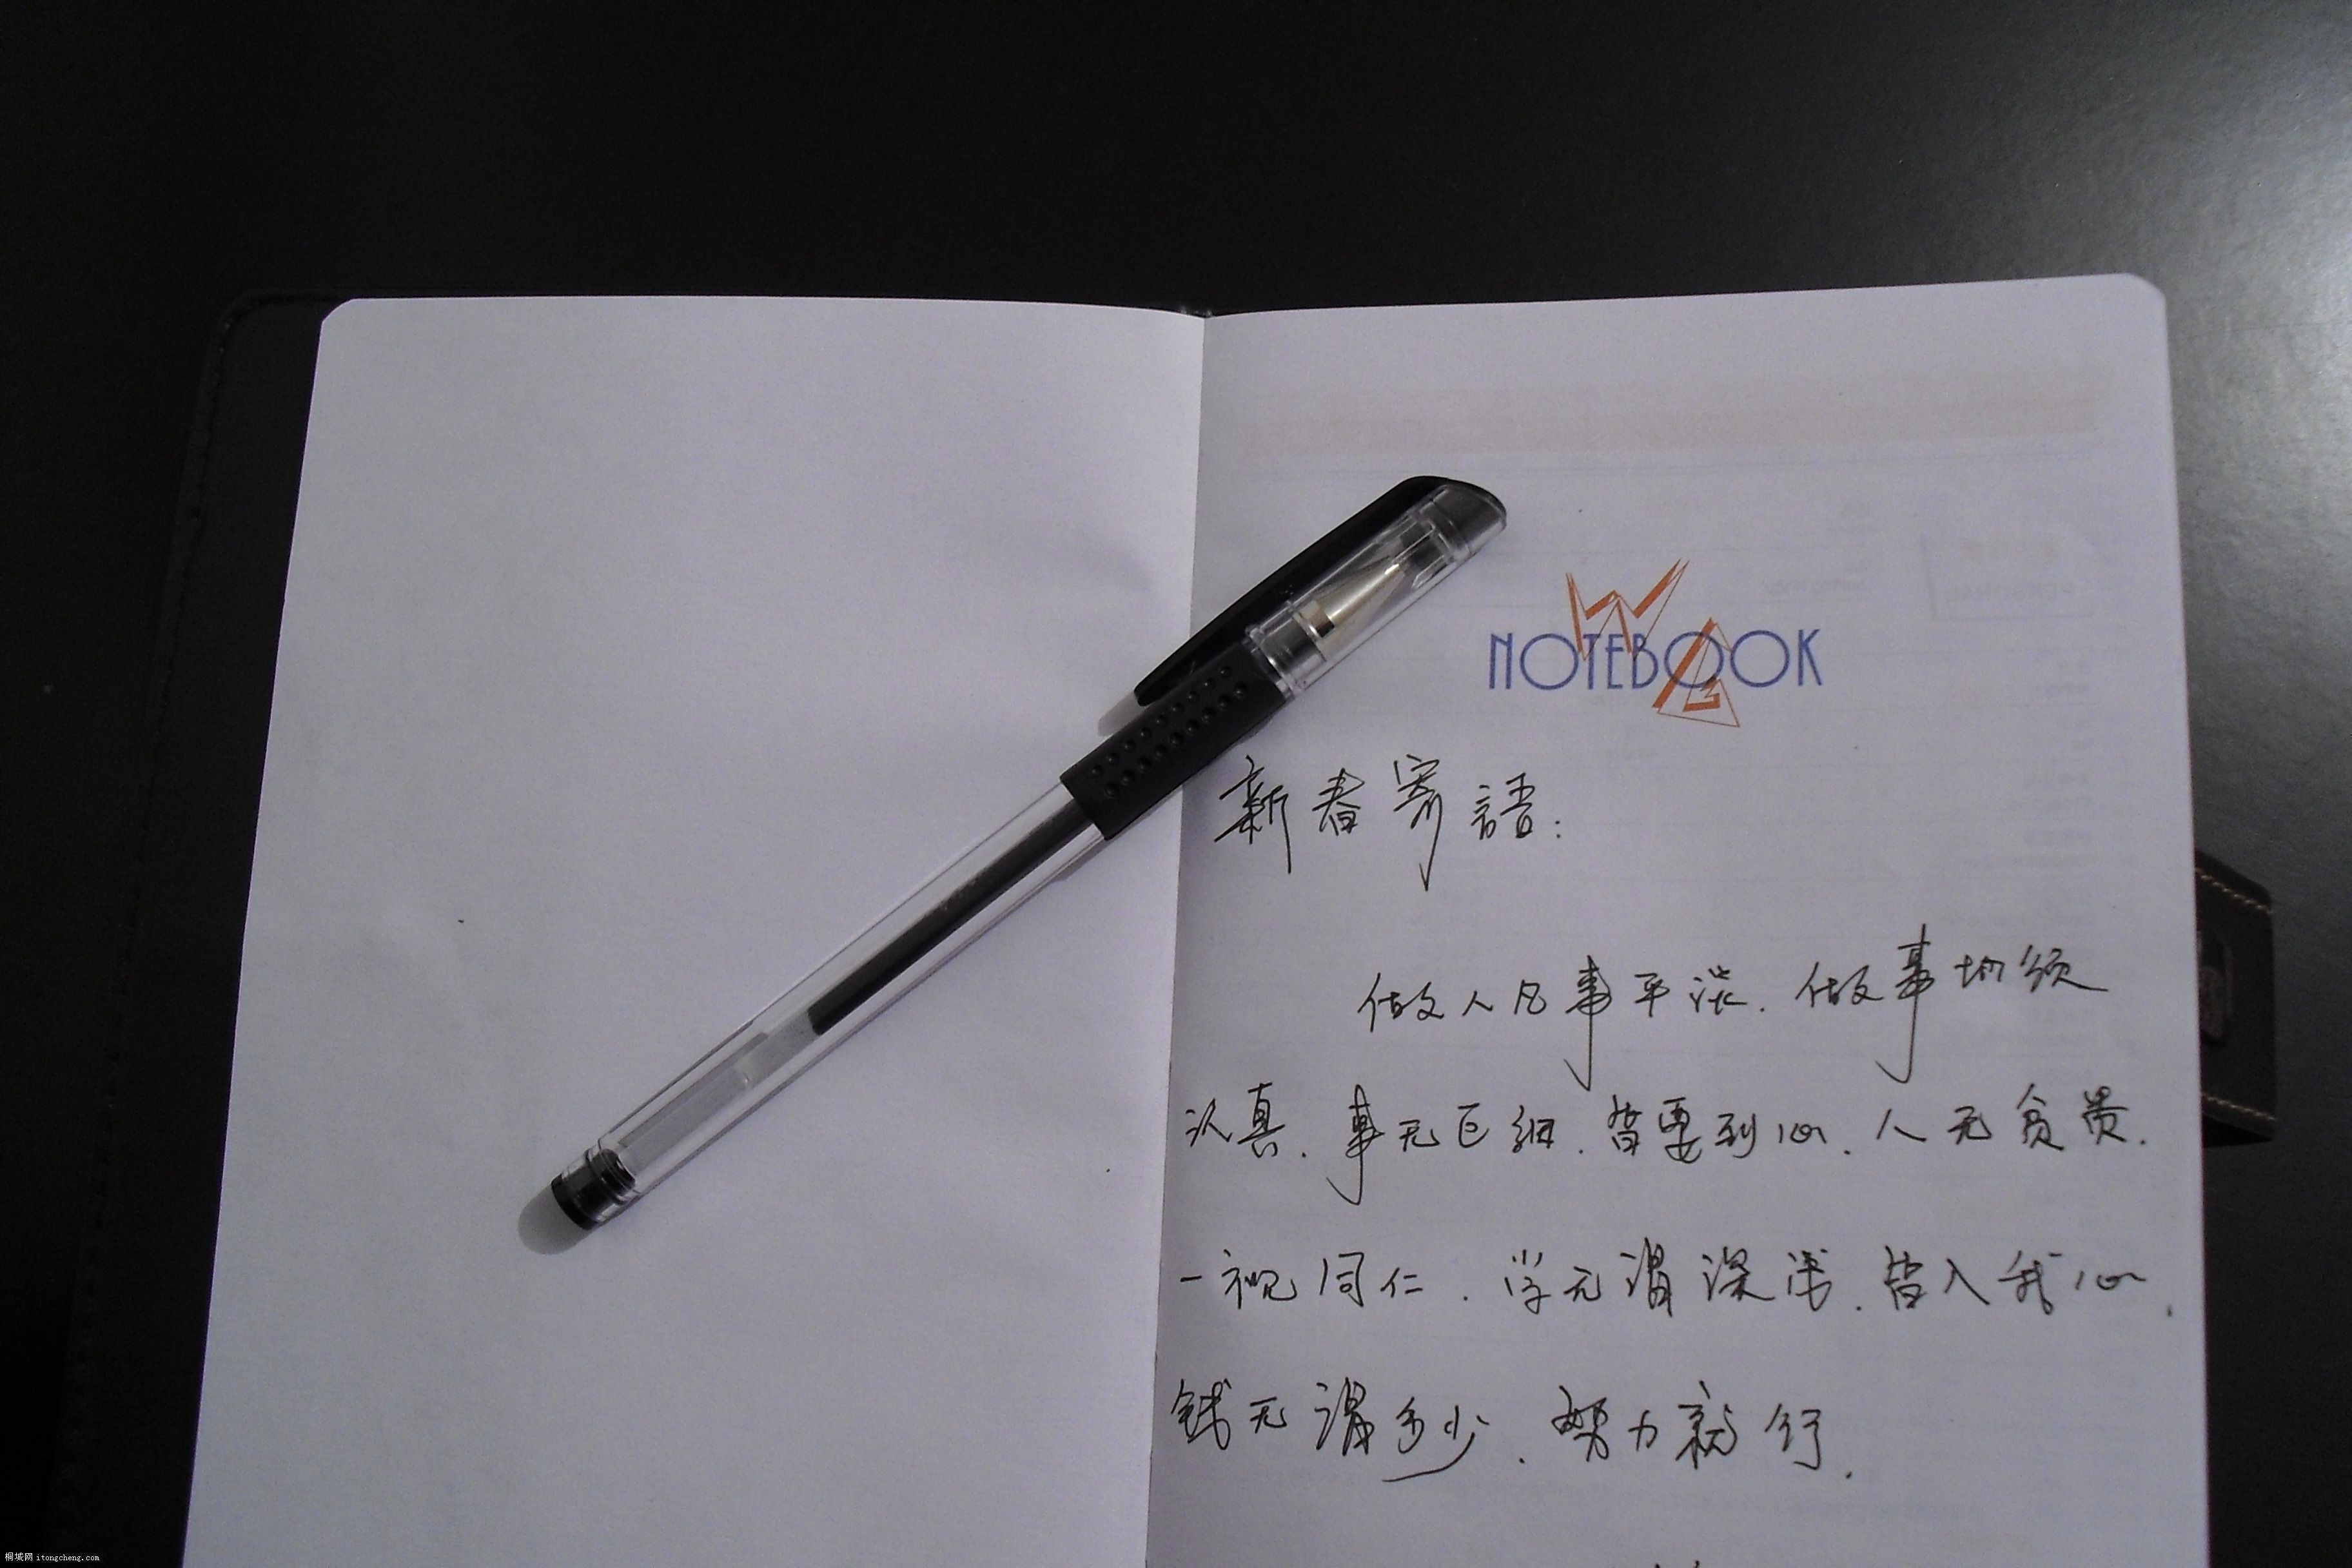 NOTEBOOK
新春寄語:
做人凡事平淡.做事切须
认真.事无巨细.皆要到心.人无贫贵.
一视同仁.学无谓深浅.皆入我心.
钱无谓多少.努力就行.
桐城网 itongcheng.com